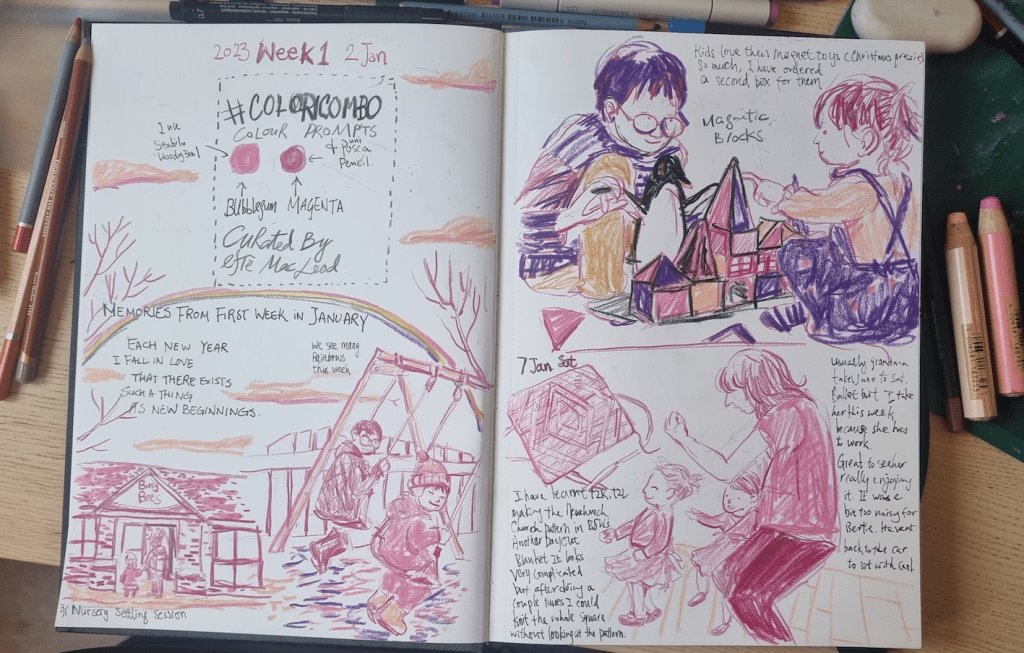 2023 Week 1 2 Jan
#COLORICOMBO
COLOUR PROMPTS
I use
Stabilo
Woody 3in1
& uni
Posca
Pencil.
Bubblegum MAGENTA
Curated By
effie MacLeod
MEMORIES FROM FIRST WEEK IN JANUARY
EACH NEW YEAR
I FALL IN LOVE
THAT THERE EXISTS
SUCH A THING
AS NEW BEGINNINGS.
We see many
Rainbows
this week
Busy
Bees
3/1 Nursery Settling Session
Kids love their magnet toys (Christmas presie)
So much, I have ordered
a second box for them
Magnetic
Blocks
7 Jan Sat
I have learnt
making the
Church pattern in
Another Day out
Blanket It looks
Very complicated
but after doing a
couple times I could
knit the whole square
without looking at the pattern.
usually grandma
takes June to Sat.
Ballet but I take
her this week
because she has
to work.
Great to see her
really enjoying
it. It was a
bit too noisy for
Bertie. He went
back to the car
to sit with Carl.